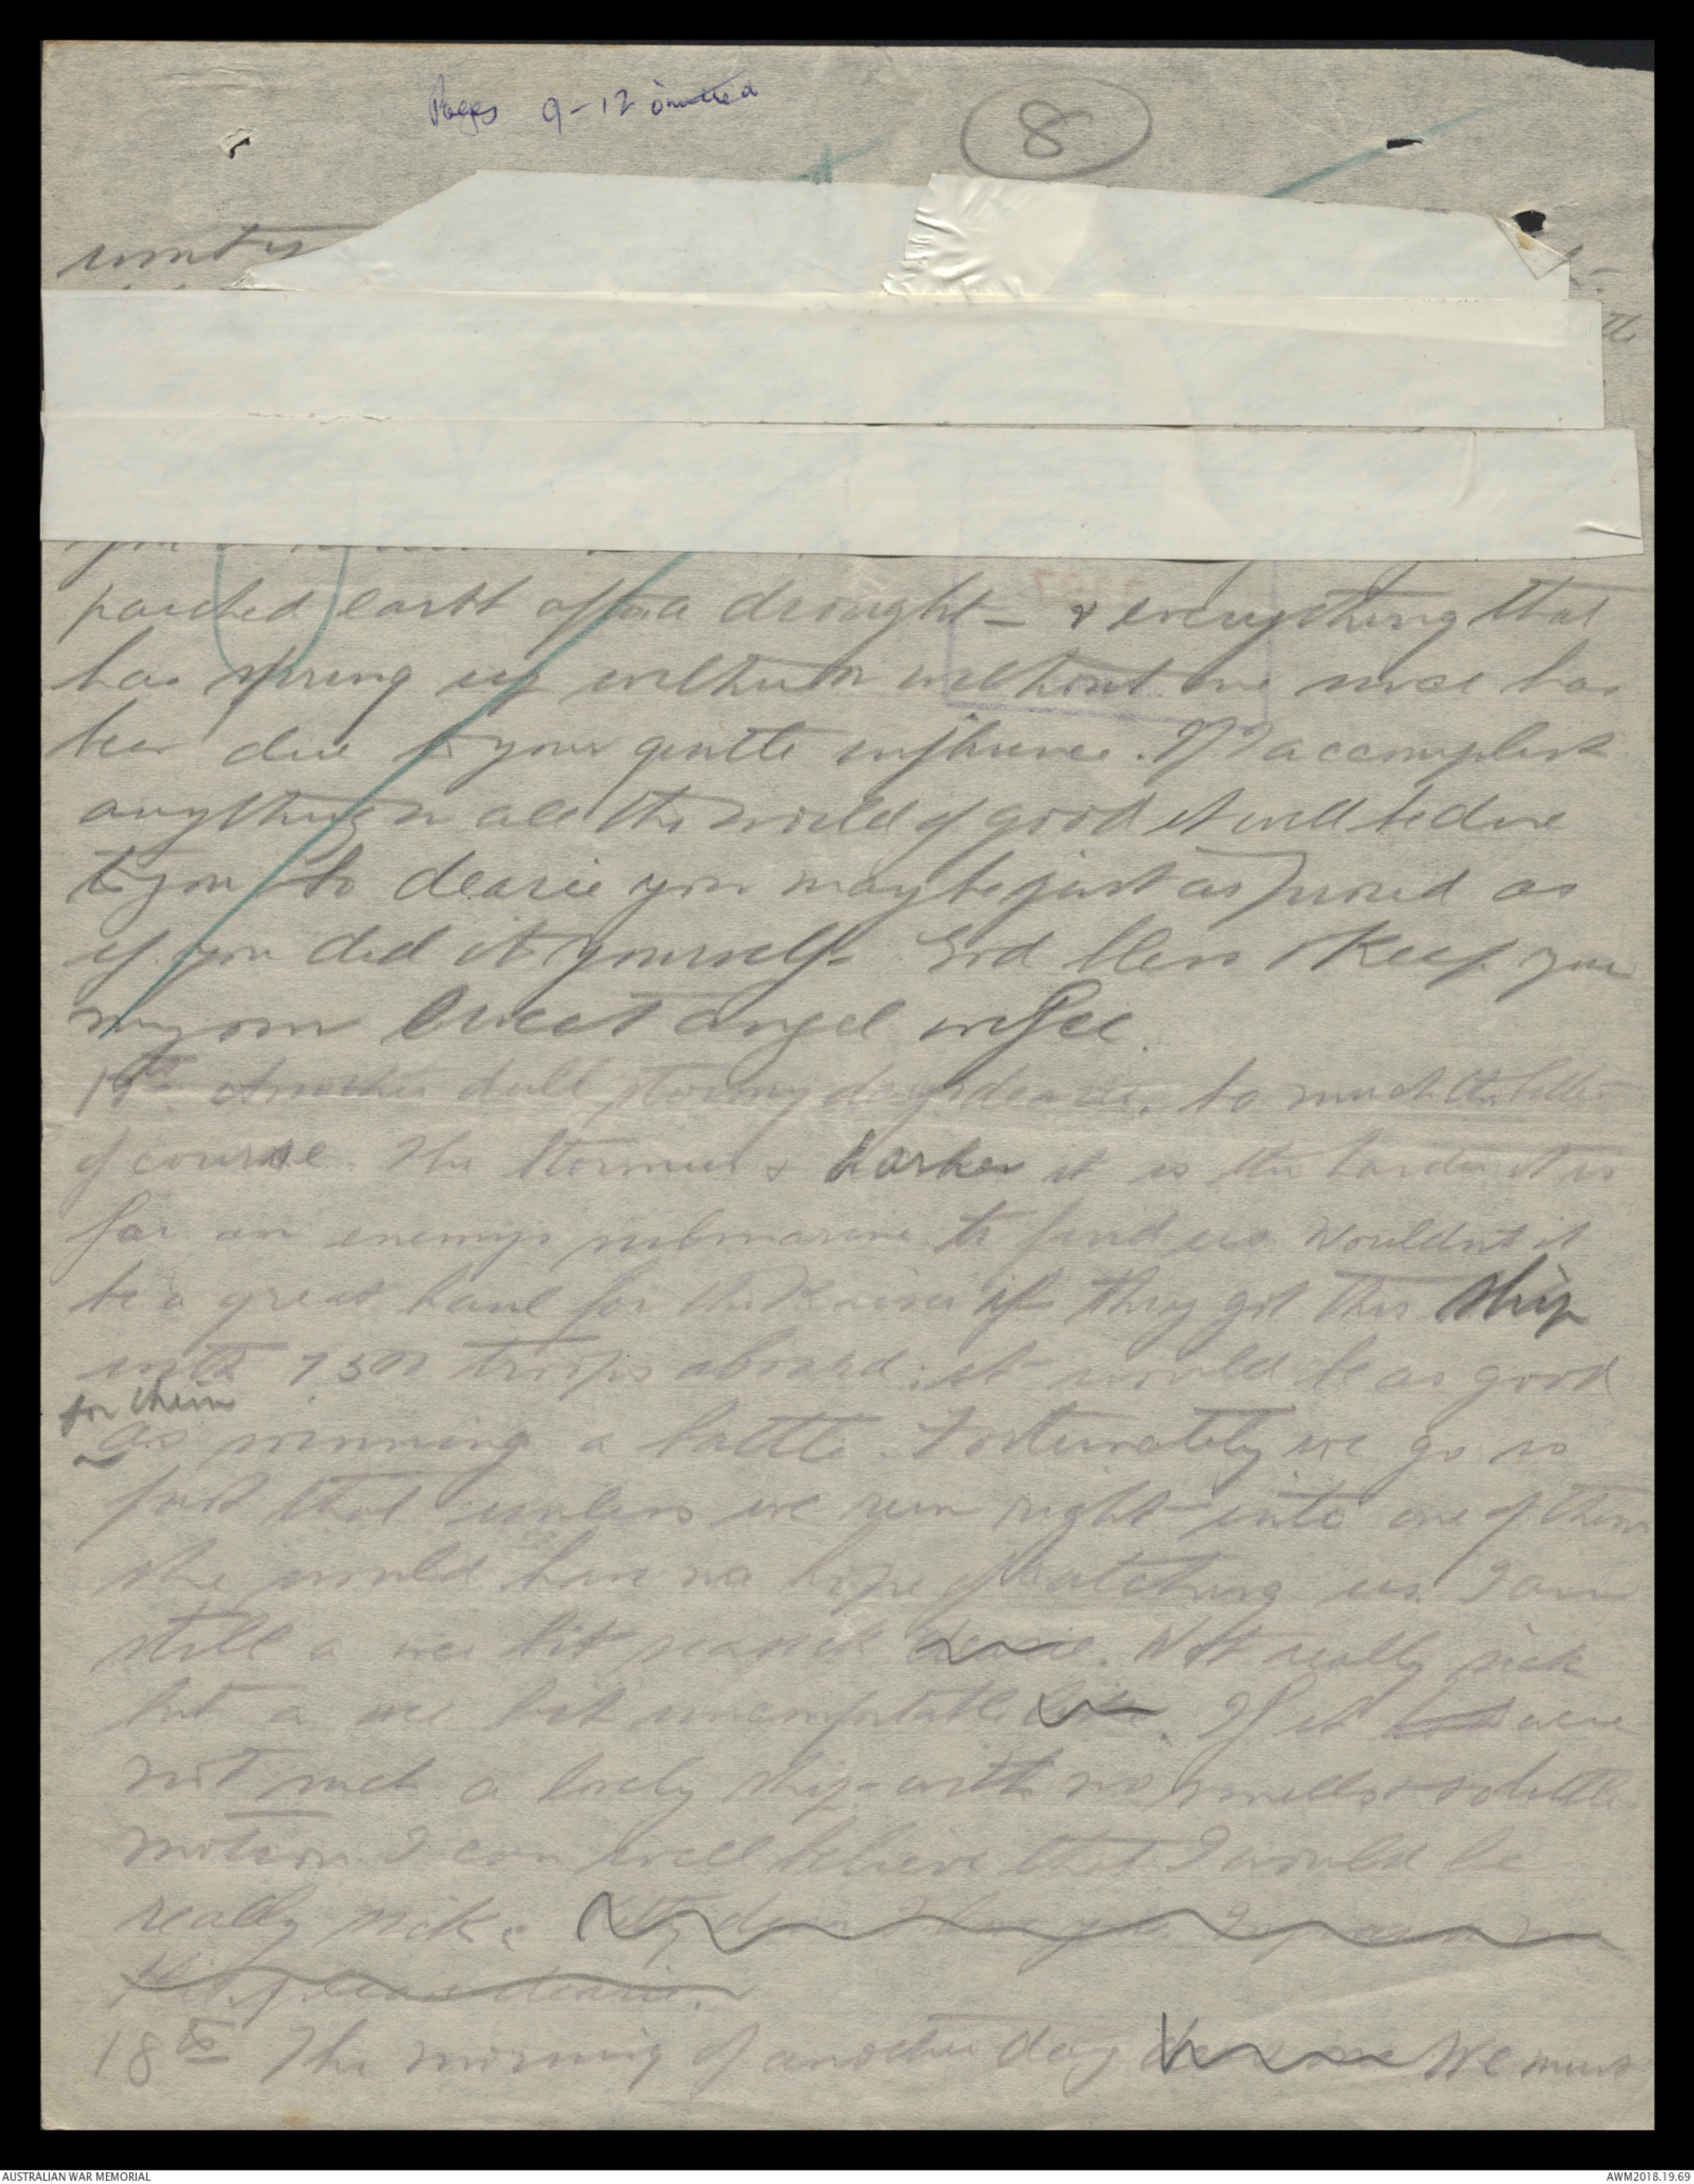 Pages 9-12 omitted
8
parched earth after a drought - & everything that
has sprung up within or without me since has
been due to your gentle influence. If I accomplish
anything in all the world of good it will be due
to you so dearie you may be just as proud as
if you did it yourself - God bless & keep you
my own sweet angel wifee.
17th Another dull stormy day dearie. so much the better
of course. The stormier & darker it is the harder it is
for an enemy's submarine to find us. Wouldn't it
be a great haul for the Kaiser if they got this ship
with 7,500 troops aboard; it would be as good
for them
as winning a battle. Fortunately we go so
fast that unless we run right into one of them
she would have no hope of catching us. I am
still a wee bit seasick dearie. Not really sick
but a wee bit uncomfortable like. If it were
not such a lovely ship - with no smells & so little
motion I can well believe that I would be
really sick.
18th The morning of another day We must